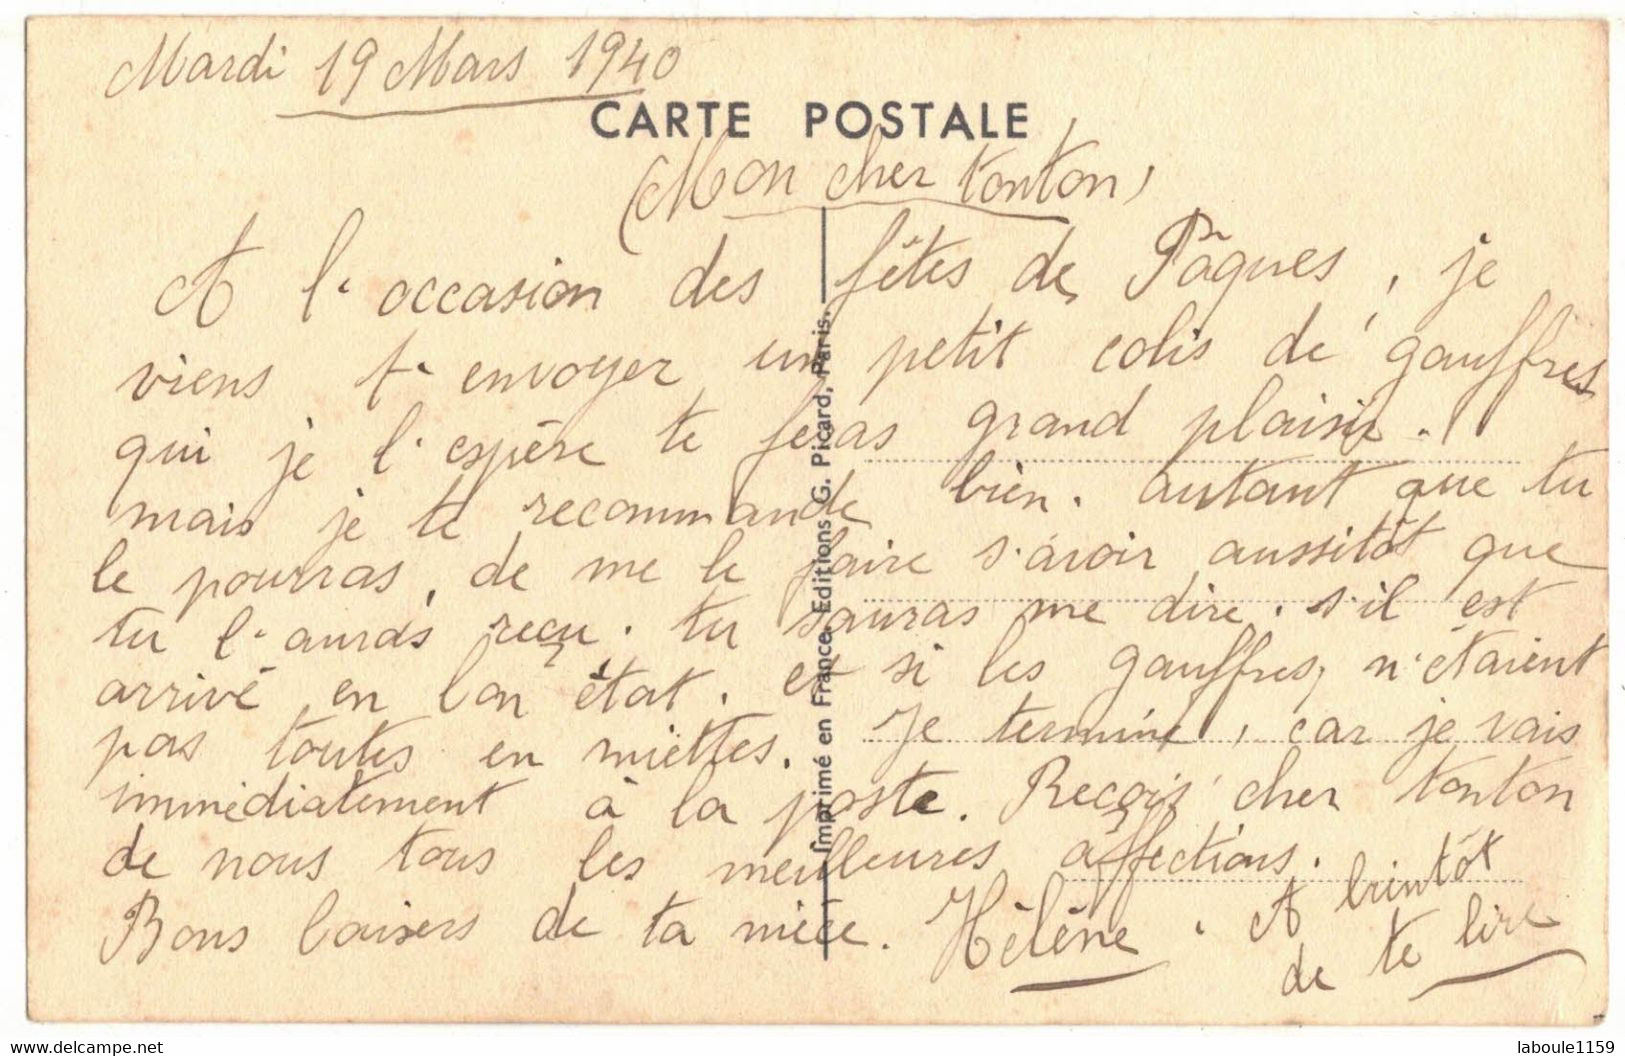 Mardi 19 Mars 1940
CARTE POSTALE
(Mon cher tonton)
A l'occasion des fêtes de Pâques, je
viens t'envoyer un petit colis de gauffres
qui je l'espère te feras grand plaisir.
mais je te recommande bien. autant que tu
le pourras, de me le faire s'avoir aussitôt que
tu l'auras reçu. tu sauras me dire. s'il est
arrivé en bon état. et si les gauffres, n'étaient
pas toutes en miettes. Je termine, car je vais
immédiatement à la poste. Reçois cher tonton
de nous tous les meilleures affections.
Bons baisers de ta nièce. Hélène. A bientôt
de te lire
Imprimé en France. Editions G. Picard, Paris.
www.delcampe.net
laboule1159